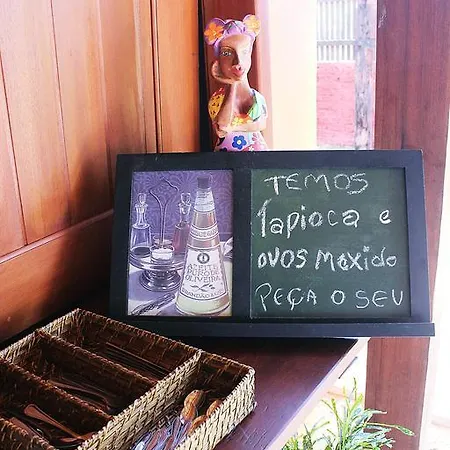 TEMOS
Tapioca e
ovos Mexido
PEÇA O SEU